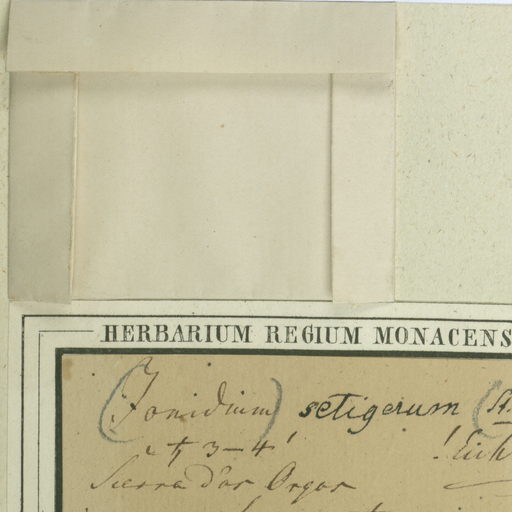 HERBARIUM REGIUM MONACENS
(Jonidium) setigerum (St.
3–4' ! Eich
Sierra d'os Orgos